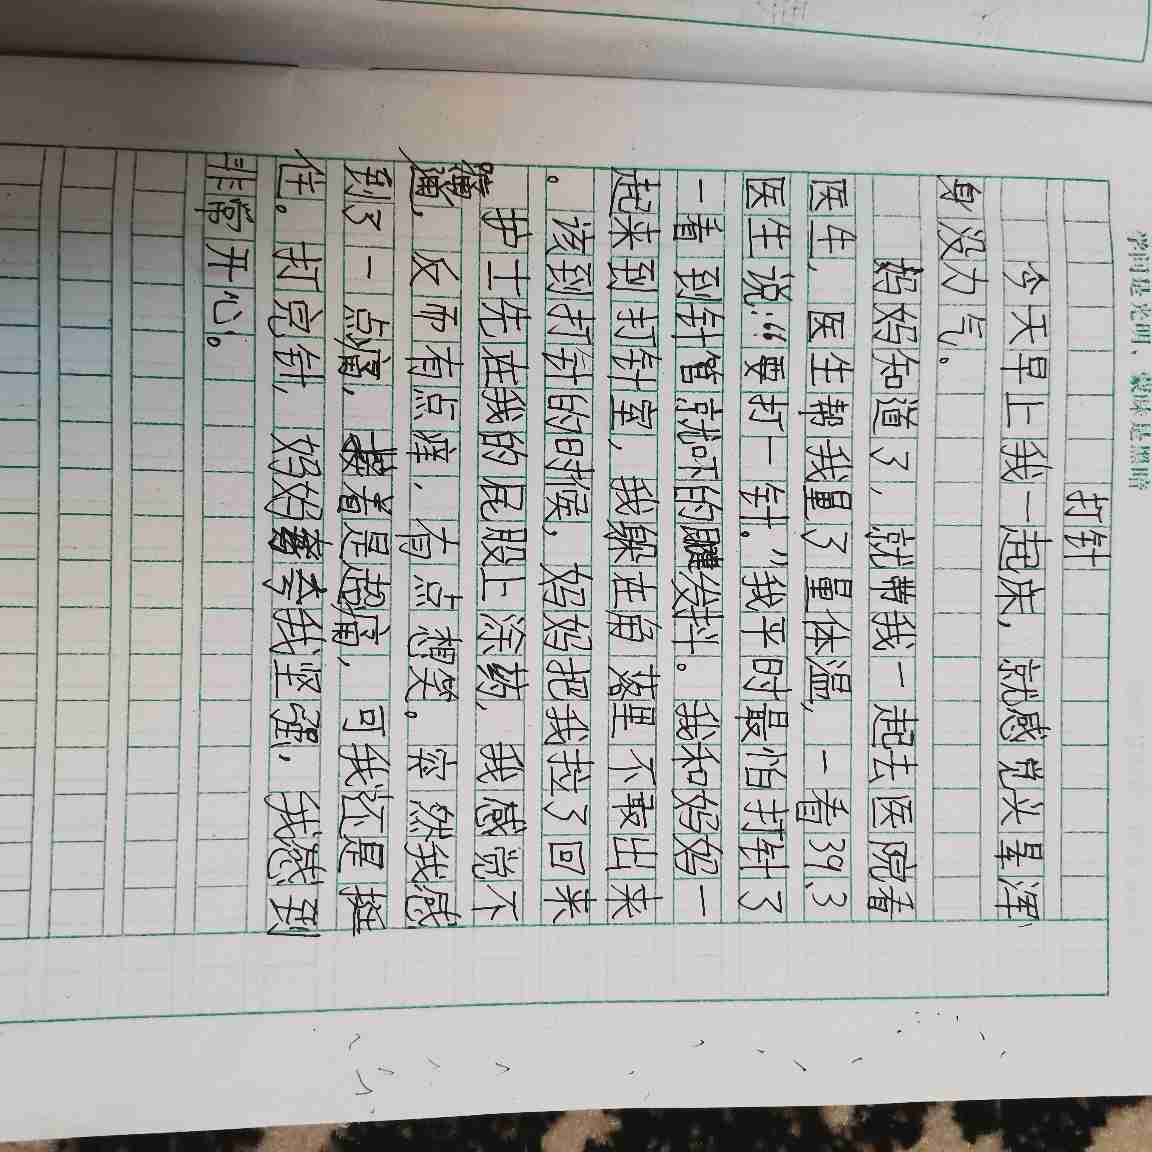 学问是光明，蒙昧是黑暗
打针
今天早上我一起床，就感觉头晕，浑
身没力气。
妈妈知道了，就带我一起去医院看
医生，医生帮我量了量体温，一看39.3
医生说：“要打一针。”我平时最怕打针了
一看到针管就吓的腿发抖。我和妈妈一
起来到打针室，我躲在角落里不敢出来
。该到打针的时候，妈妈把我拉了回来
护士先在我的屁股上涂药，我感觉不
通，反而有点痒，有点想笑。突然我感
到了一点痛，接着是超痛，可我还是挺
住。打完针，妈妈夸我坚强，我感到
非常开心。